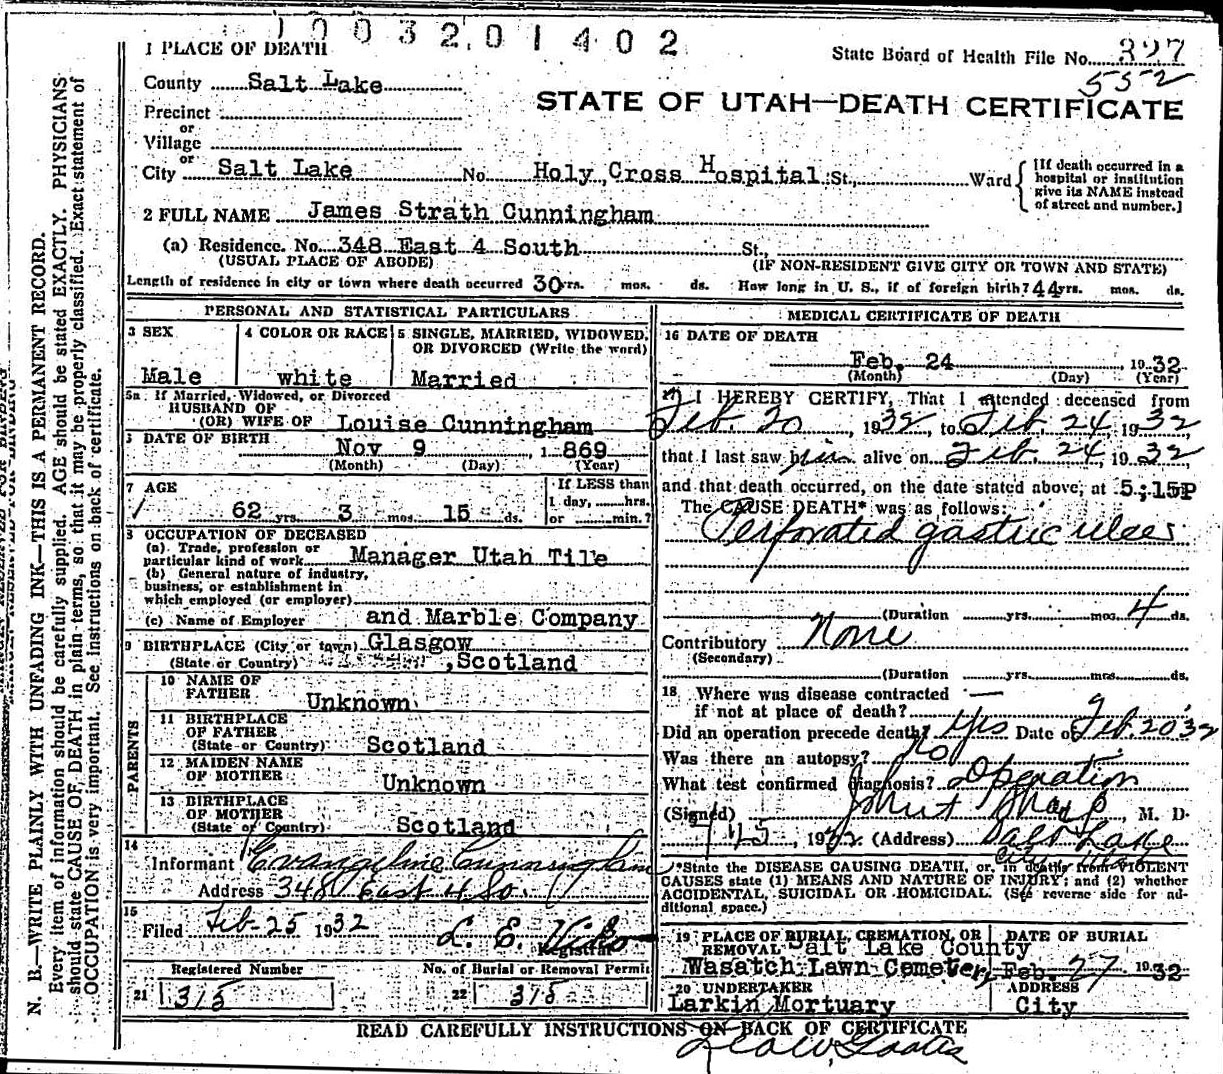 1003201402
1 PLACE OF DEATH
State Board of Health File No. 327
552
County Salt Lake
STATE OF UTAH—DEATH CERTIFICATE
Precinct
or
Village
or
City Salt Lake No. Holy Cross Hospital St., Ward
[If death occurred in a hospital or institution give its NAME instead of street and number.]
2 FULL NAME James Strath Cunningham
(a) Residence. No. 348 East 4 South St.,
(USUAL PLACE OF ABODE) (IF NON-RESIDENT GIVE CITY OR TOWN AND STATE)
Length of residence in city or town where death occurred 30 yrs. mos. ds. How long in U. S., if of foreign birth? 44 yrs. mos. ds.
PERSONAL AND STATISTICAL PARTICULARS
3 SEX
Male
4 COLOR OR RACE
white
5 SINGLE, MARRIED, WIDOWED,
OR DIVORCED (Write the word)
Married
5a If Married, Widowed, or Divorced
HUSBAND OF
(OR) WIFE OF Louise Cunningham
6 DATE OF BIRTH
Nov 9, 1869
(Month) (Day) (Year)
7 AGE
62 yrs. 3 mos. 15 ds.
If LESS than
1 day, hrs.
or min.?
8 OCCUPATION OF DECEASED
(a) Trade, profession or
particular kind of work Manager Utah Tile
(b) General nature of industry,
business, or establishment in
which employed (or employer)
(c) Name of Employer and Marble Company
9 BIRTHPLACE (City or town) Glasgow
(State or Country) ,Scotland
PARENTS
10 NAME OF
FATHER Unknown
11 BIRTHPLACE
OF FATHER
(State or Country) Scotland
12 MAIDEN NAME
OF MOTHER Unknown
13 BIRTHPLACE
OF MOTHER
(State or Country) Scotland
14
Informant Evangeline Cunningham
Address 348 East 4 So.
15
Filed Feb-25 1932 L. E. Viko
Registrar
Registered Number
21 315
No. of Burial or Removal Permit
22 315
MEDICAL CERTIFICATE OF DEATH
16 DATE OF DEATH
Feb. 24 1932
(Month) (Day) (Year)
17 I HEREBY CERTIFY, That I attended deceased from
Feb. 20, 1932, to Feb. 24, 1932,
that I last saw him alive on Feb. 24, 1932
and that death occurred, on the date stated above, at 5:15P
The CAUSE DEATH* was as follows:
Perforated gastric ulcer
(Duration yrs. mos. 4 ds.
Contributory None
(Secondary)
(Duration yrs. mos. ds.
18 Where was disease contracted —
if not at place of death?
Did an operation precede death? Yes Date of Feb. 20 '32
Was there an autopsy? No
What test confirmed diagnosis? Operation
(Signed) , M. D.
1932 (Address) Salt Lake
City Utah
*State the DISEASE CAUSING DEATH, or, in deaths from VIOLENT
CAUSES state (1) MEANS AND NATURE OF INJURY; and (2) whether
ACCIDENTAL, SUICIDAL OR HOMICIDAL. (See reverse side for ad-
ditional space.)
19 PLACE OF BURIAL, CREMATION, OR
REMOVAL Salt Lake County
Wasatch Lawn Cemetery
DATE OF BURIAL
Feb. 27 1932
20 UNDERTAKER
Larkin Mortuary
ADDRESS
City
READ CAREFULLY INSTRUCTIONS ON BACK OF CERTIFICATE
N. B.—WRITE PLAINLY WITH UNFADING INK—THIS IS A PERMANENT RECORD.
Every item of information should be carefully supplied. AGE should be stated EXACTLY. PHYSICIANS
should state CAUSE OF DEATH in plain terms, so that it may be properly classified. Exact statement of
OCCUPATION is very important. See instructions on back of certificate.